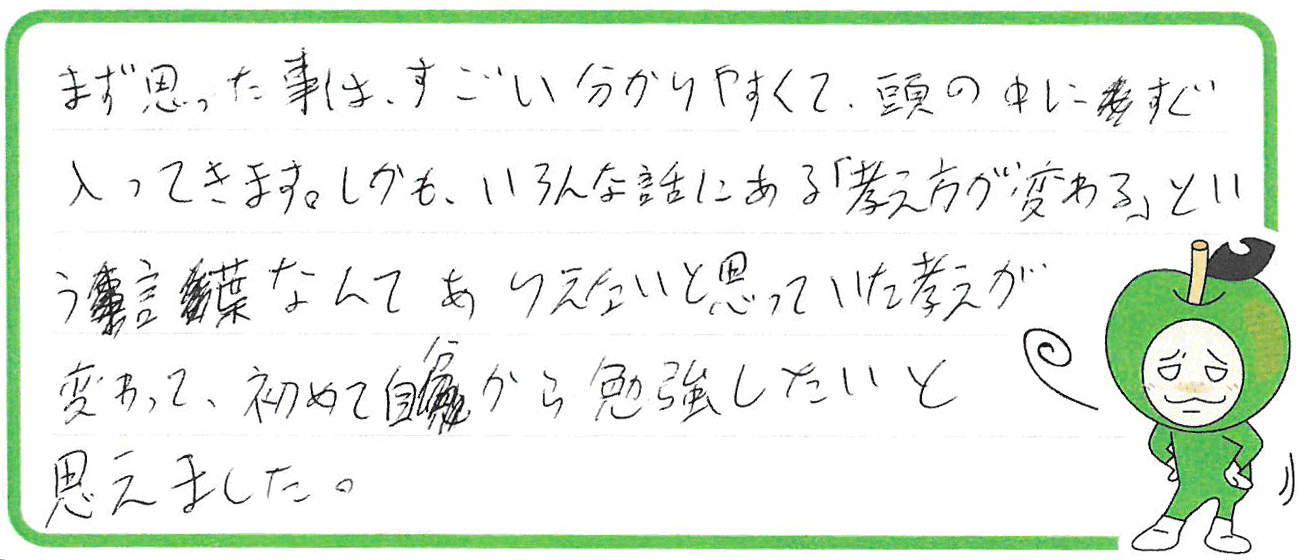 まず思った事は、すごい分かりやすくて、頭の中にすぐ
入ってきます。しかも、いろんな話にある「考え方が変わる」とい
う言葉なんてありえないと思っていた考えが
変わって、初めて自分から勉強したいと
思えました。